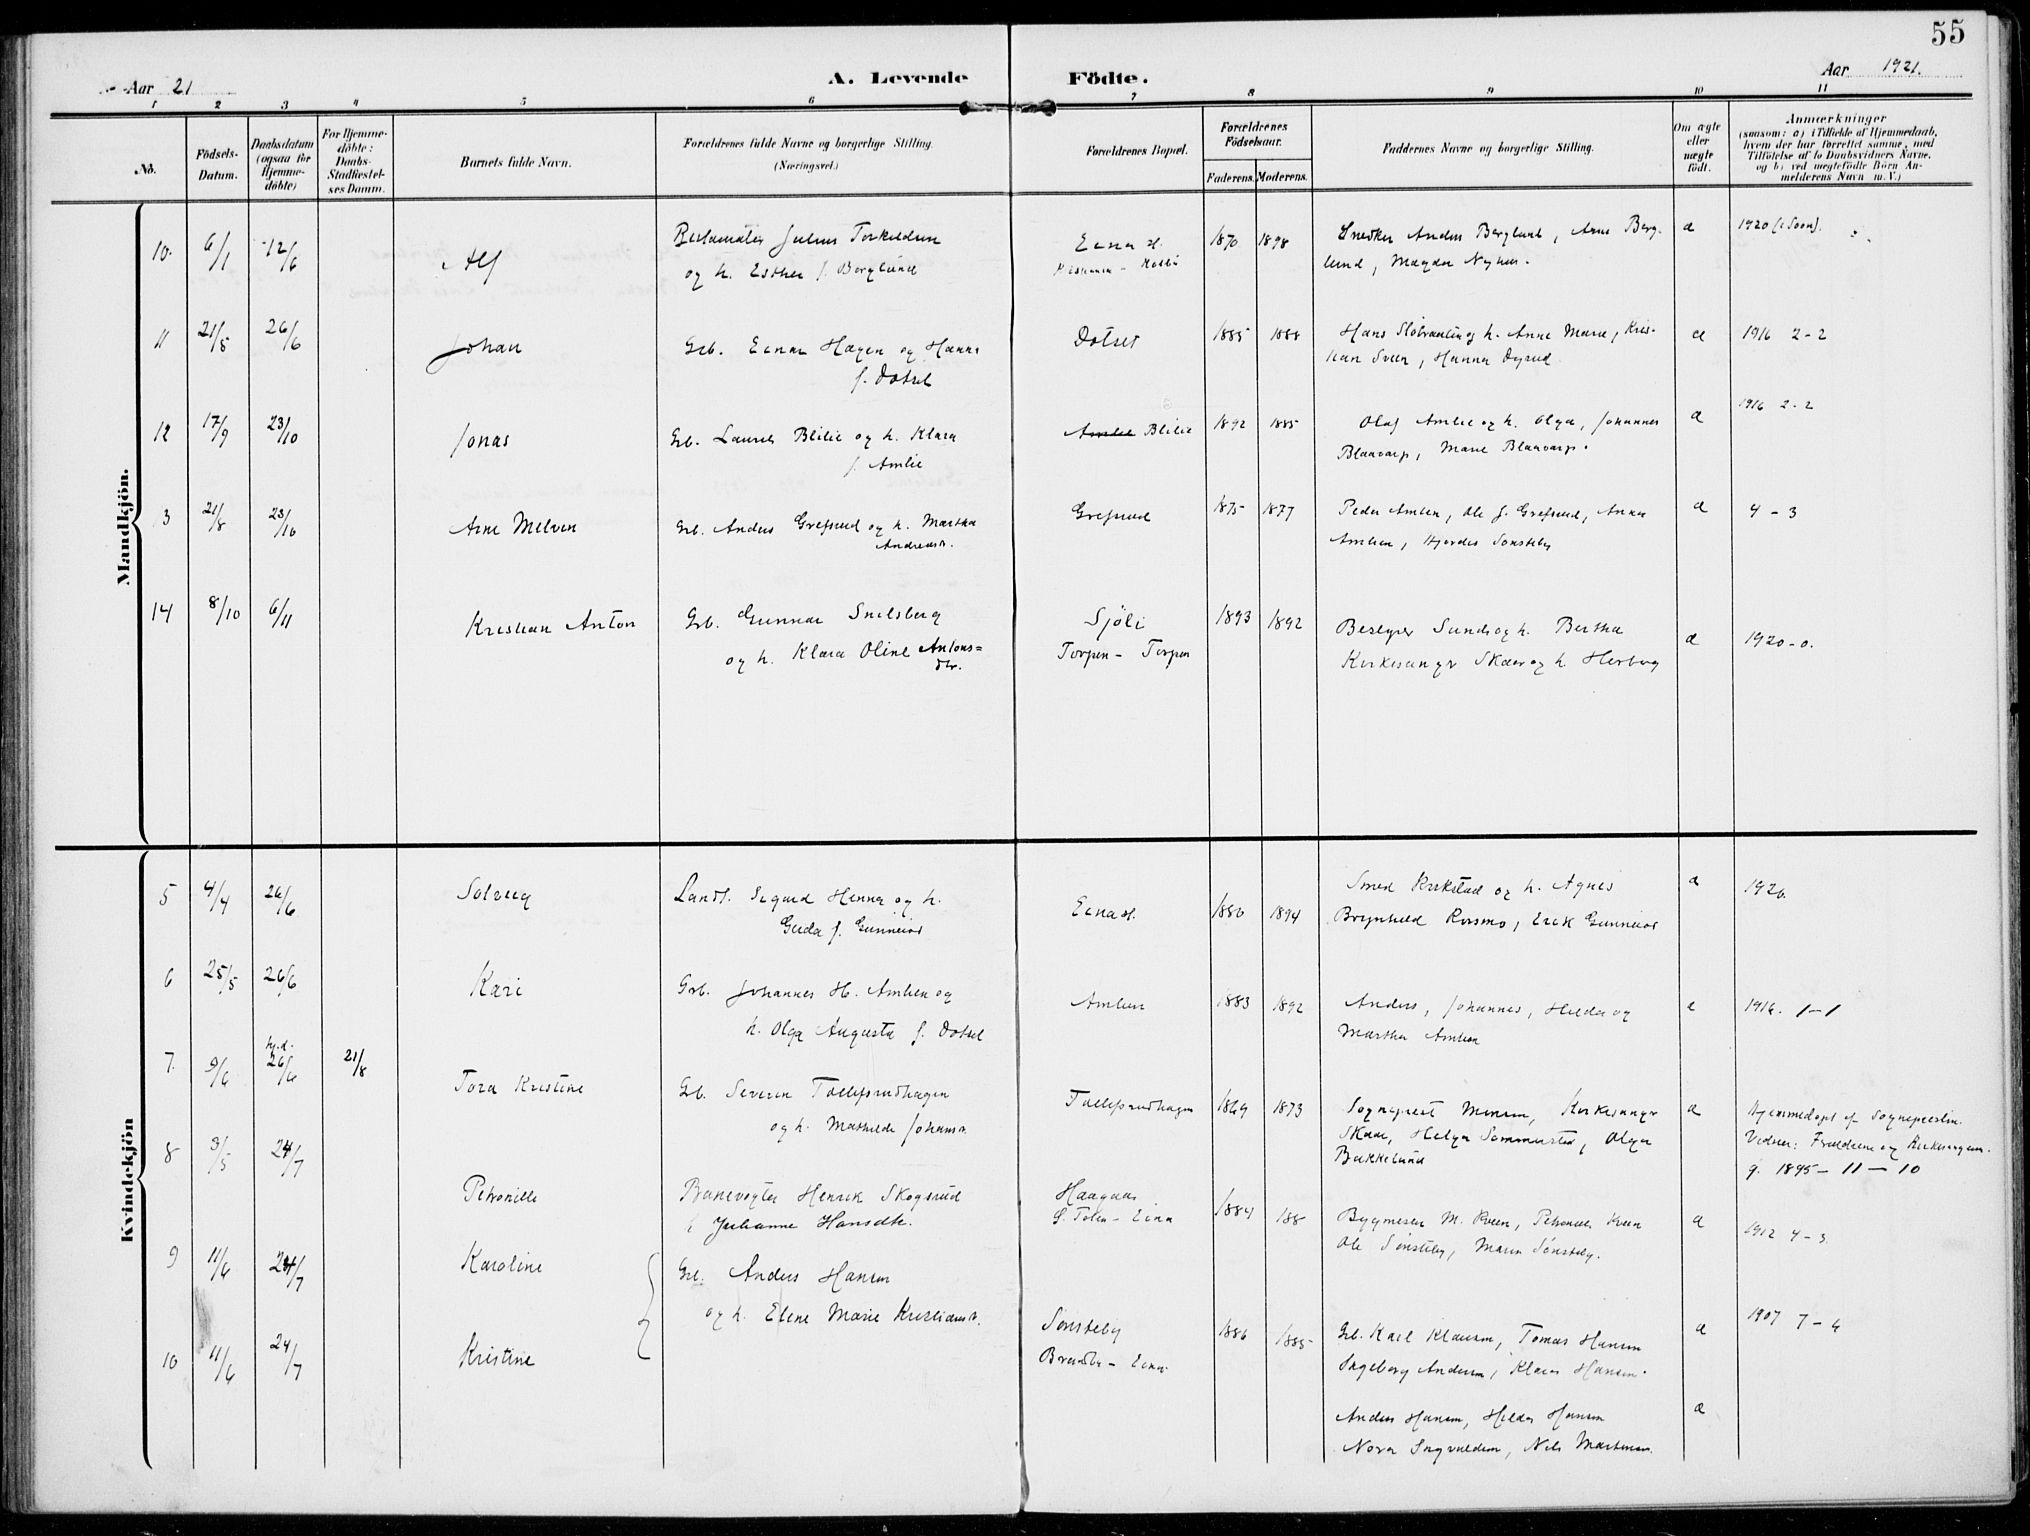 55
Aar 21
A. Levende Födte.
Aar 1921.
1 2 3 4 5 6 7 8 9 10 11
No.
Födsels-Datum.
Daabsdatum (ogsaa for Hjemme-döbte)
For Hjemme-döbte: Daabs-Stadfæstel-ses Datum.
Barnets fulde Navn.
Forældrenes fulde Navne og borgerlige Stilling.
(Næringsvei.)
Forældrenes Bopæl.
Forældrenes Födselsaar.
Faderens. Moderens.
Faddernes Navne og borgerlige Stilling.
Om ægte eller uægte födt.
Anmærkninger
(saasom: a) i Tilfælde af Hjemmedaab,
hvem der har forrettet samme, med
Tilföielse af to Daabsvidners Navne,
og b) ved uægtefödte Börn An-
melderens Navn m. V.)
Mandkjön.
10. 6/1 12/6 Alf
Julius Torkildsen
og h. Esther f. Berglund
Eina st.
1870 1898
Snedker Anders Berglund, Arne Berg-
lund, Magda Nyhus.
a
1920
11 21/5 26/6 Johan
Grb. Einar Hagen og Hanna
f. Dotset
Dotset
1885 1888
Hans og h. Anne Marie, Kris-
tian Sveen, Hanna Dyrud
a
1916 2-2
12 17/9 23/10 Jonas
Grb. Laurits Blilie og h. Klara
f. Amlie
Amlie Blilie
1892 1885
Olaf Amlie og h. Olga, Johannes
Blaavarp, Marie Blaavarp.
a
1916 2-2
3 21/8 23/10 Arne Melvin
Grb. Anders Grefsrud og h. Martha
Andreasd.
Grefsrud
1875 1877
Peder Amlien, Ole J. Grefsrud, Anna
Amlien, Hjördis Sönsteby
a
4-3
14 8/10 6/11 Kristian Anton
Grb. Gunnar Snilsberg
og h. Klara Oline Antons=
dtr.
Sjöli
Torpen - Torpen
1893 1892
Bestyrer Sunds og h. Bertha
Kirkesanger Skaar og h. Herborg
a
1920-0.
Kvindekjön
5 4/4 26/6 Solveig
Landh. Sigurd Henna og h.
Guda f. Gunneiod
Eina st.
1880 1894
Smed Kirkstad og h. Agnes
Brynhild Rosmo, Erik Gunneiod
a
1920.
6 25/5 26/6 Kari
Grb. Johannes H. Amlien og
h. Olga Augusta f. Dotset
Amlien
1883 1892
Anders, Johannes, Hilda og
Martha Amlien
1916. 1-1
7. 9/6 hj.d. 26/6 21/8 Tora Kristine
Grb. Severin Tollefsrudhagen
og h. Mathilde Johansd.
Tollefsrudhagen
1869 1873
Sogneprest Kirkesanger
Skaar, Helga Sommerstad, Olga
Bakkelund
a
Hjemmedöpt af Sognepresten.
Vidner: Forældrene og Kirkesangeren.
g. 1895-11-10
8 3/5 24/7 Petronille
Banevogter Henrik Skogsrud
h Julianne Hansdtr.
Haagaas
S. Toten - Eina
1884 188
Bygmester M. Kveen, Petronille Kveen
Ole Sönsteby, Maren Sönsteby.
a
1912 4-3
9 11/6 24/7 Karoline
Grb. Anders Hansen
og h. Eline Marie Kristiansd.
Sönsteby
Eina
1886 1885
Grb. Karl Klausen, Tomas Hansen
Ingeborg Andersen, Klara Hansen.
a
1907 7-6
10 11/6 24/7 Kristine
Anders Hansen, Hilda Hansen
Nora Ingvaldsen, Nils Martinsen.
a